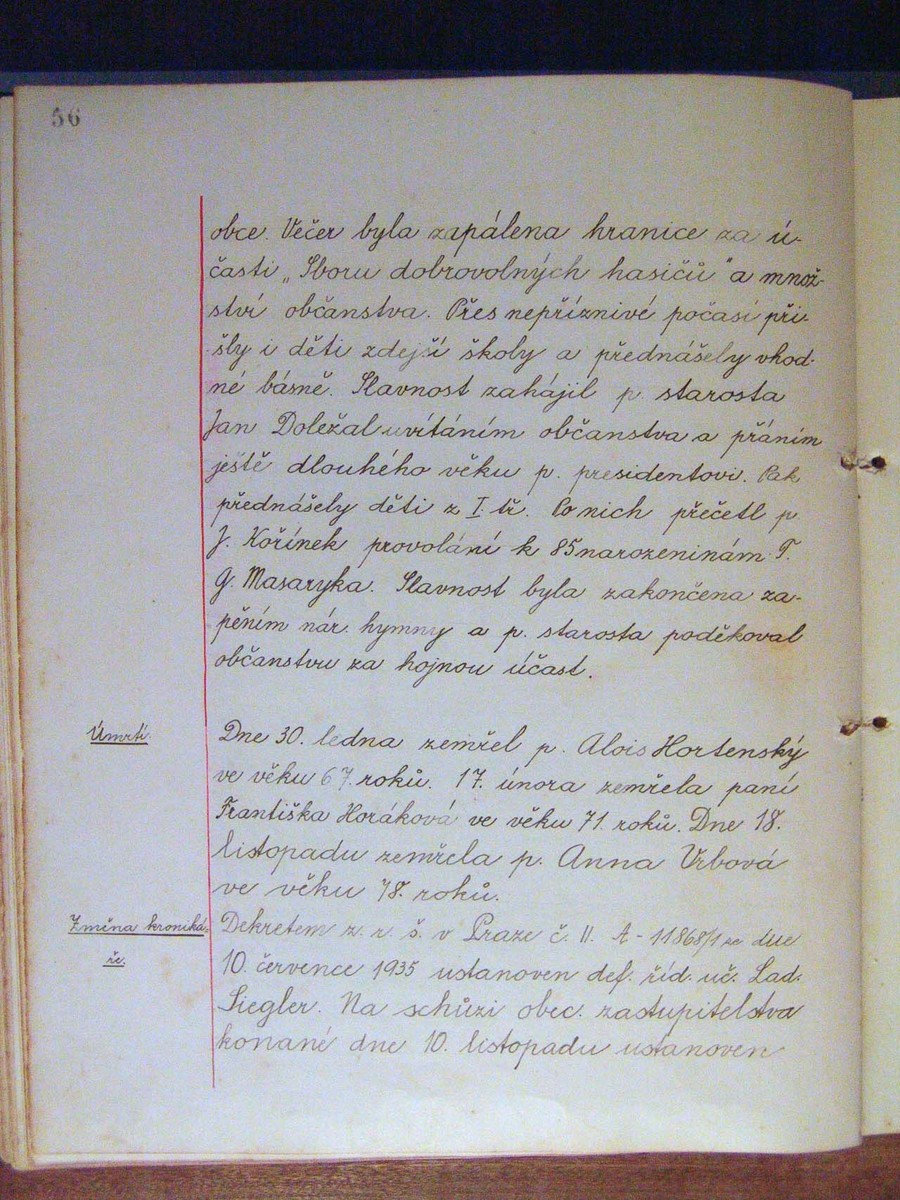 56
obce. Večer byla zapálena hranice za ú-
časti „Sboru dobrovolných hasičů" a množ-
ství občanstva. Přes nepříznivé počasí při-
šly i děti zdejší školy a přednášely vhod-
né básně. Slavnost zahájil p. starosta
Jan Doležal uvítáním občanstva a přáním
ještě dlouhého věku p. presidentovi. Pak
přednášely děti z I. tř. Po nich přečetl p.
J. Kořínek provolání k 85 narozeninám T.
G. Masaryka. Slavnost byla zakončena za-
pěním nár. hymny a p. starosta poděkoval
občanstvu za hojnou účast.
Úmrtí.
Dne 30. ledna zemřel p. Alois Hortenský
ve věku 67. roků. 17. února zemřela paní
Františka Horáková ve věku 71. roků. Dne 18.
listopadu zemřela p. Anna Vrbová
ve věku 78. roků.
Změna kroniká-
ře.
Dekretem z. r. š. v Praze č. II. A - 11868/1 ze dne
10. července 1935 ustanoven def. říd. uč. Lad.
Siegler. Na schůzi obec. zastupitelstva
konané dne 10. listopadu ustanoven